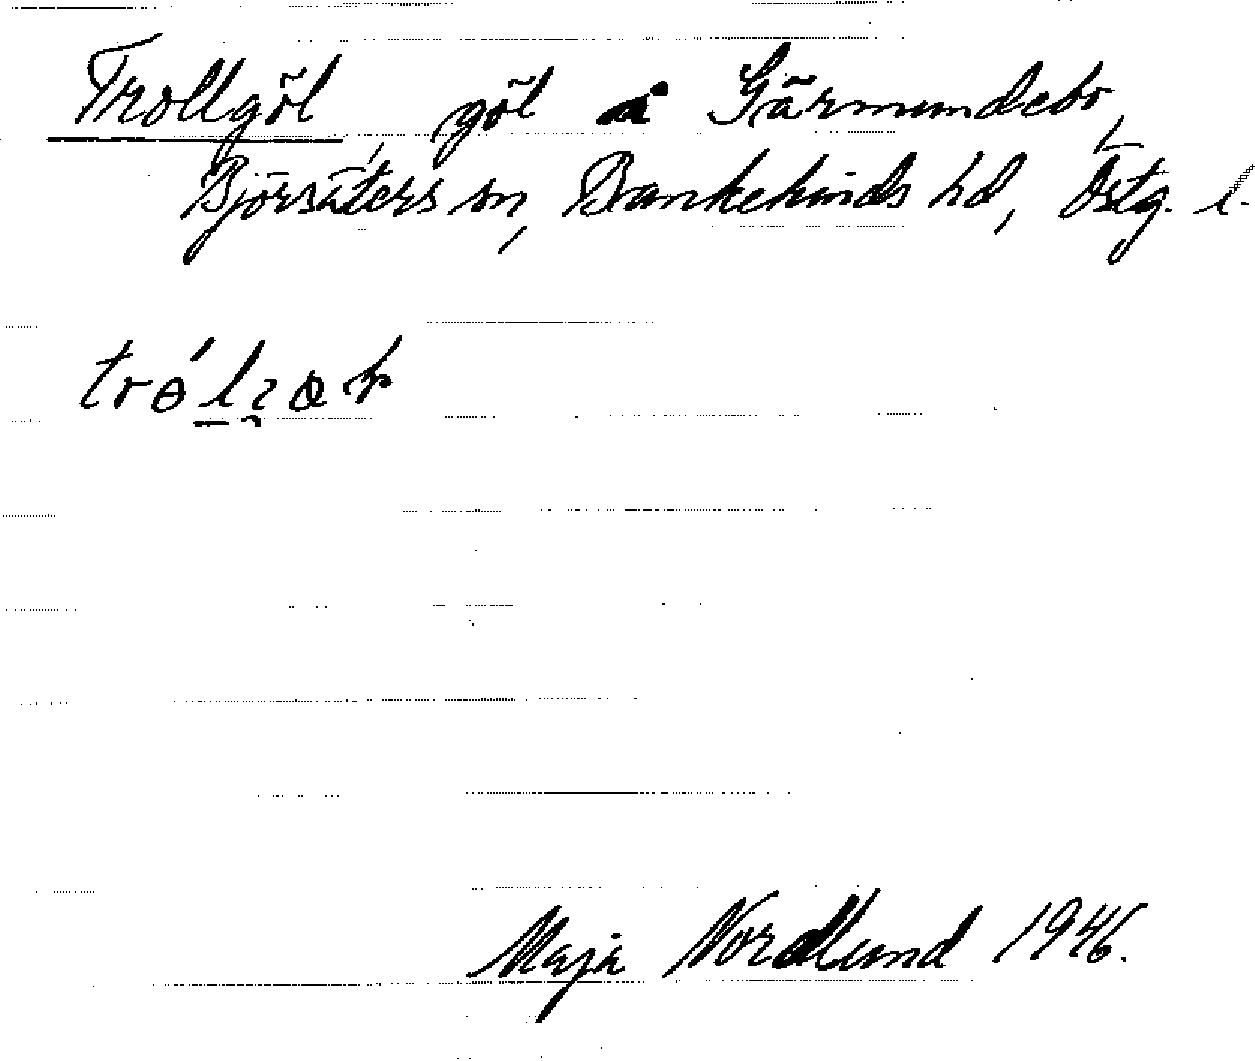 Trollgöl, göl å Gärmundebo,
Björsäters sn, Bankekinds hd, Östg. l.
Maja Nordlund 1946.